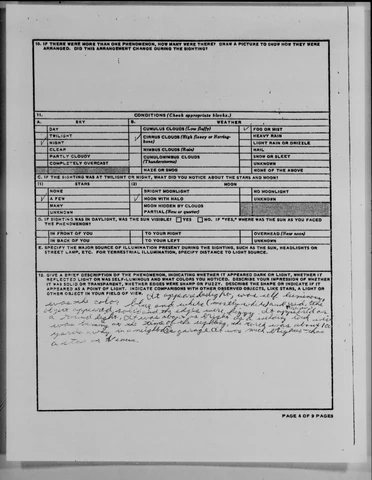 10. IF THERE WERE MORE THAN ONE PHENOMENON, HOW MANY WERE THERE? DRAW A PICTURE TO SHOW HOW THEY WERE
ARRANGED. DID THIS ARRANGEMENT CHANGE DURING THE SIGHTING?
11. CONDITIONS (Check appropriate blocks.)
A. SKY B. WEATHER
DAY CUMULUS CLOUDS (Low fluffy) FOG OR MIST
TWILIGHT CIRRUS CLOUDS (High fleecy or Herring-bone) HEAVY RAIN
NIGHT LIGHT RAIN OR DRIZZLE
CLEAR NIMBUS CLOUDS (Rain) HAIL
PARTLY CLOUDY CUMULONIMBUS CLOUDS SNOW OR SLEET
COMPLETELY OVERCAST (Thunderstorms) UNKNOWN
HAZE OR SMOG NONE OF THE ABOVE
C. IF THE SIGHTING WAS AT TWILIGHT OR NIGHT, WHAT DID YOU NOTICE ABOUT THE STARS AND MOON?
(1) STARS (2) MOON
NONE BRIGHT MOONLIGHT NO MOONLIGHT
A FEW MOON WITH HALO UNKNOWN
MANY MOON HIDDEN BY CLOUDS
UNKNOWN PARTIAL (New or quarter)
D. IF SIGHTING WAS IN DAYLIGHT, WAS THE SUN VISIBLE? YES NO IF "YES," WHERE WAS THE SUN AS YOU FACED
THE PHENOMENON?
IN FRONT OF YOU TO YOUR RIGHT OVERHEAD (Near noon)
IN BACK OF YOU TO YOUR LEFT UNKNOWN
E. SPECIFY THE MAJOR SOURCE OF ILLUMINATION PRESENT DURING THE SIGHTING, SUCH AS THE SUN, HEADLIGHTS OR
STREET LAMP, ETC. FOR TERRESTRIAL ILLUMINATION, SPECIFY DISTANCE TO LIGHT SOURCE.
12. GIVE A BRIEF DESCRIPTION OF THE PHENOMENON, INDICATING WHETHER IT APPEARED DARK OR LIGHT, WHETHER IT
REFLECTED LIGHT OR WAS SELF-LUMINOUS AND WHAT COLORS YOU NOTICED. DESCRIBE YOUR IMPRESSION OF WHETHER
IT WAS SOLID OR TRANSPARENT, WHETHER EDGES WERE SHARP OR FUZZY. DESCRIBE THE SHAPE OR INDICATE IF IT
APPEARED AS A POINT OF LIGHT. INDICATE COMPARISONS WITH OTHER OBSERVED OBJECTS, LIKE STARS, A LIGHT OR
OTHER OBJECT IN YOUR FIELD OF VIEW.
It appeared light, was self luminous
was the color and white
object appeared solid and the edges were fuzzy. It appeared as
a round light. It was about as bright as a
was at the time of the sighting, the
away in a neighbor's garage. It was much brighter than
Venus
PAGE 4 OF 9 PAGES